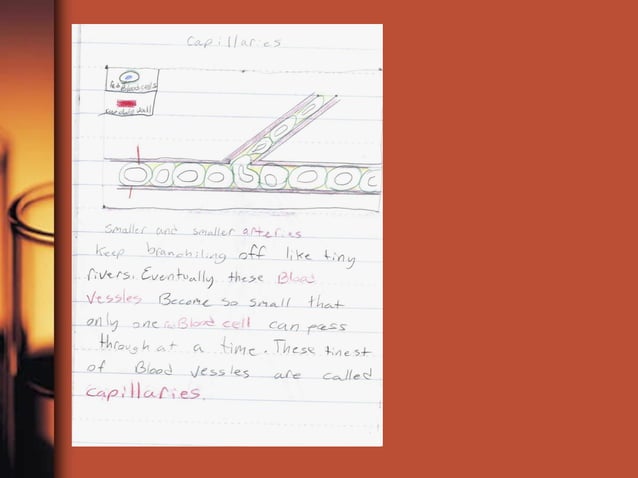 Capillaries
Blood cells
Smaller and smaller arteries
Keep branchiling off like tiny
rivers. Eventually these Blood
Vessles Become so small that
only one Blood cell can pass
through at a time. These tinest
of Blood vessles are called
capillaries.